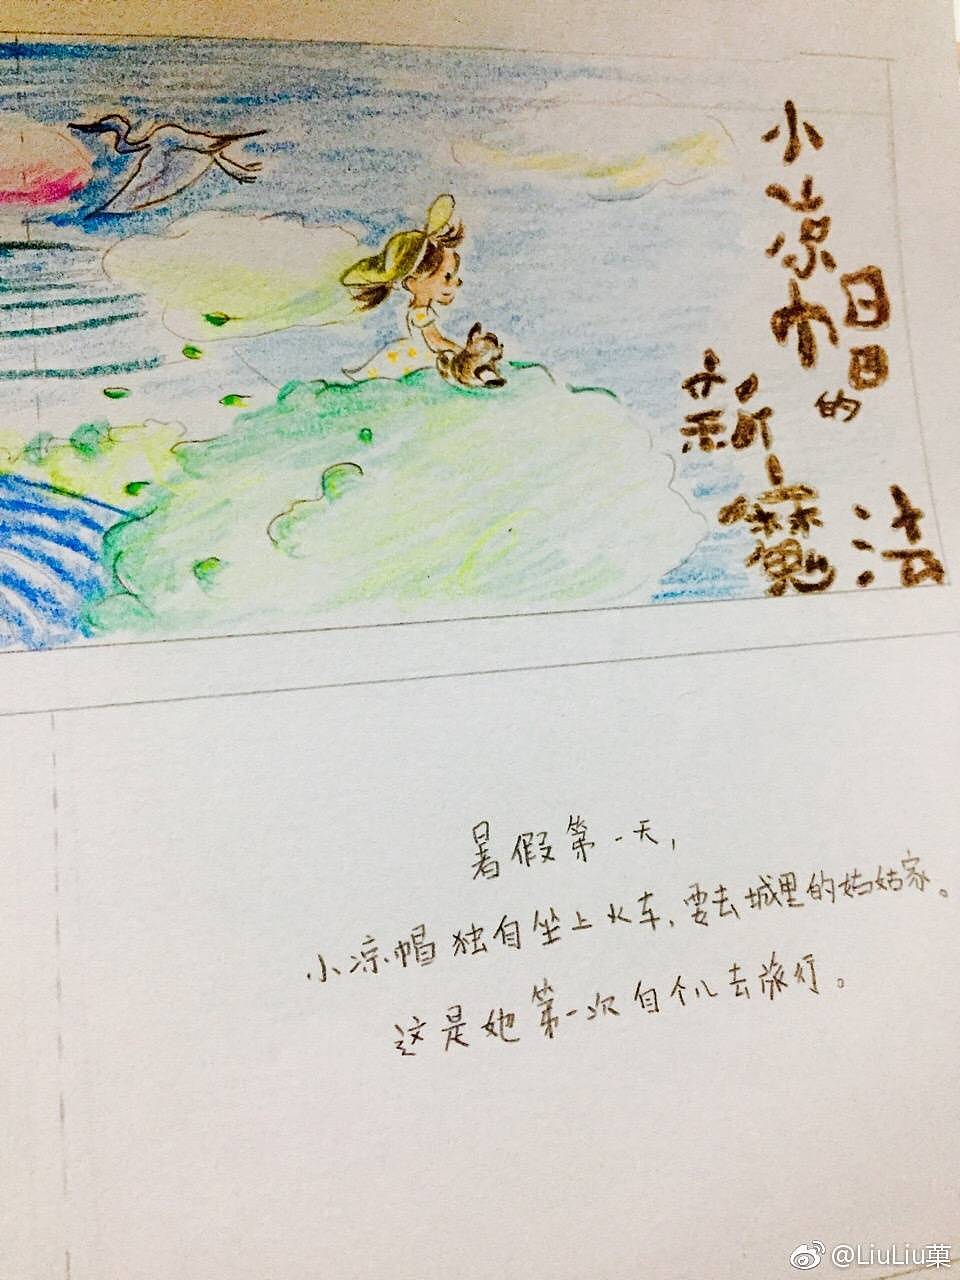 小凉帽的
新魔法
暑假第一天,
小凉帽独自坐上火车,要去城里的姑姑家。
这是她第一次自个儿去旅行。
@LiuLiu菓